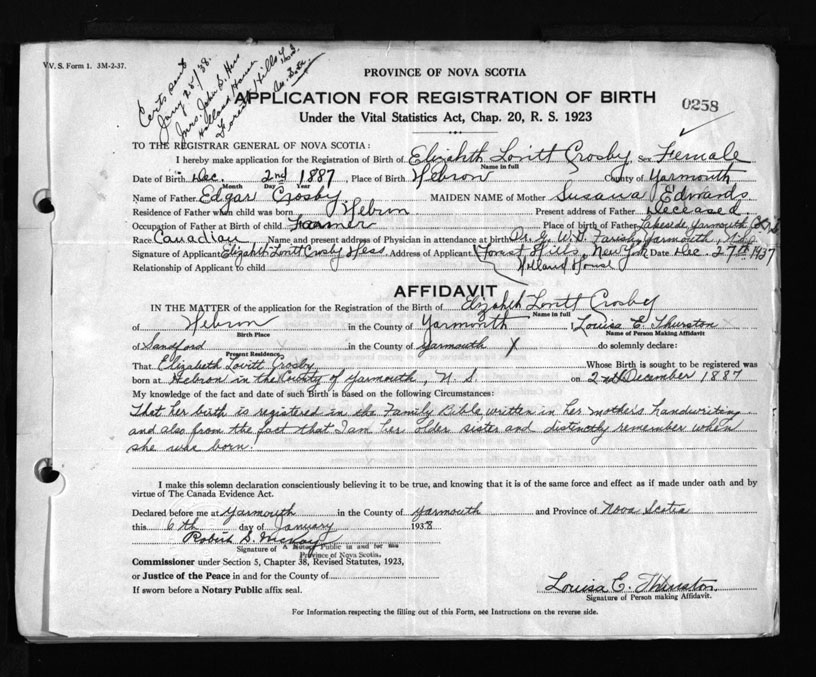 V. S. Form 1. 3M-2-37.
Certs sent
Jany 28/38.
Mrs. John S. Hess
Holland House
Forest Hills L. I.
PROVINCE OF NOVA SCOTIA
APPLICATION FOR REGISTRATION OF BIRTH
0258
Under the Vital Statistics Act, Chap. 20, R. S. 1923
TO THE REGISTRAR GENERAL OF NOVA SCOTIA:
I hereby make application for the Registration of Birth of Elizabeth Lovitt Crosby, Sex Female
Name in full
Date of Birth Dec. 2nd 1887, Place of Birth Hebron County of Yarmouth
Month Day Year
Name of Father Edgar Crosby MAIDEN NAME of Mother Susana Edwards
Residence of Father when child was born Hebron Present address of Father Deceased
Occupation of Father at Birth of child Farmer Place of birth of Father Lakeside Yarmouth Co. N.S.
Race Canadian Name and present address of Physician in attendance at birth Dr. G. W. T. Farish, Yarmouth, N.S.
Signature of Applicant Elizabeth Lovitt Crosby Hess. Address of Applicant Forest Hills, New York Date Dec. 27th 1937
Relationship of Applicant to child Holland House
AFFIDAVIT
IN THE MATTER of the application for the Registration of Birth of Elizabeth Lovitt Crosby
Name in full
of Hebron in the County of Yarmouth I, Louisa E. Thurston
Birth Place Name of Person Making Affidavit
of Sandford in the County of Yarmouth do solemnly declare:
Present Residence
That Elizabeth Lovitt Crosby Whose Birth is sought to be registered was
born at Hebron in the County of Yarmouth, N. S. on 2nd December 1887
My knowledge of the fact and date of such Birth is based on the following Circumstances:
That her birth is registered in the Family Bible, written in her mothers handwriting
and also from the fact that I am her older sister and distinctly remember when
she was born.
I make this solemn declaration conscientiously believing it to be true, and knowing that it is of the same force and effect as if made under oath and by
virtue of The Canada Evidence Act.
Declared before me at Yarmouth in the County of Yarmouth and Province of Nova Scotia
this 6th day of January 1938
Robert S. McKay
Signature of A Notary Public in and for the
Province of Nova Scotia.
Commissioner under Section 5, Chapter 38, Revised Statutes, 1923,
or Justice of the Peace in and for County of
If sworn before a Notary Public affix seal.
Louisa E. Thurston
Signature of Person making Affidavit.
For Information respecting the filling out of this Form, see Instructions on the reverse side.